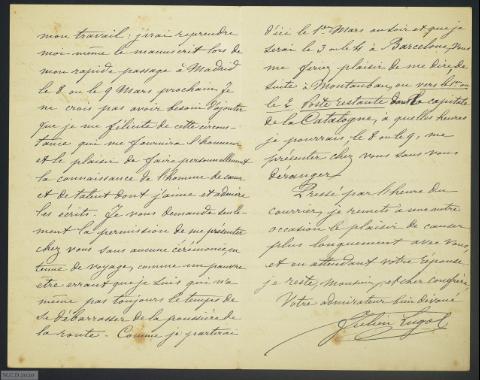 mon travail; j'irai reprendre
moi-même le manuscrit lors de
mon rapide passage à Madrid
le 8 ou le 9 Mars prochain. Je
ne crois pas avoir besoin d'ajouter
que je me félicite de cette circons-
tance qui me fournira l'honneur
et le plaisir de faire personnellement
la connaissance de l'homme de cœur
et de talent dont j'aime et admire
les écrits. Je vous demande seule-
ment la permission de me présenter
chez vous sans aucune cérémonie, en
tenue de voyage, comme un pauvre
être errant que je suis qui n'a
même pas toujours le temps de
se débarrasser de la poussière de
la route. Comme je partirai
d'ici le 1er Mars au soir et que je
serai le 3 ou le 4 à Barcelone, vous
me feriez plaisir de me dire, de
suite à Montauban, ou vers le 1er ou
le 2 poste restante dans la capitale
de la Catalogne, à quelles heures
je pourrai, le 8 ou le 9, me
présenter chez vous sans vous
déranger.
Pressé par l'heure du
courrier, je remets à une autre
occasion le plaisir de causer
plus longuement avec vous,
et en attendant votre réponse
je reste, Monsieur et cher confrère,
Votre admirateur bien dévoué
Julien Lugol